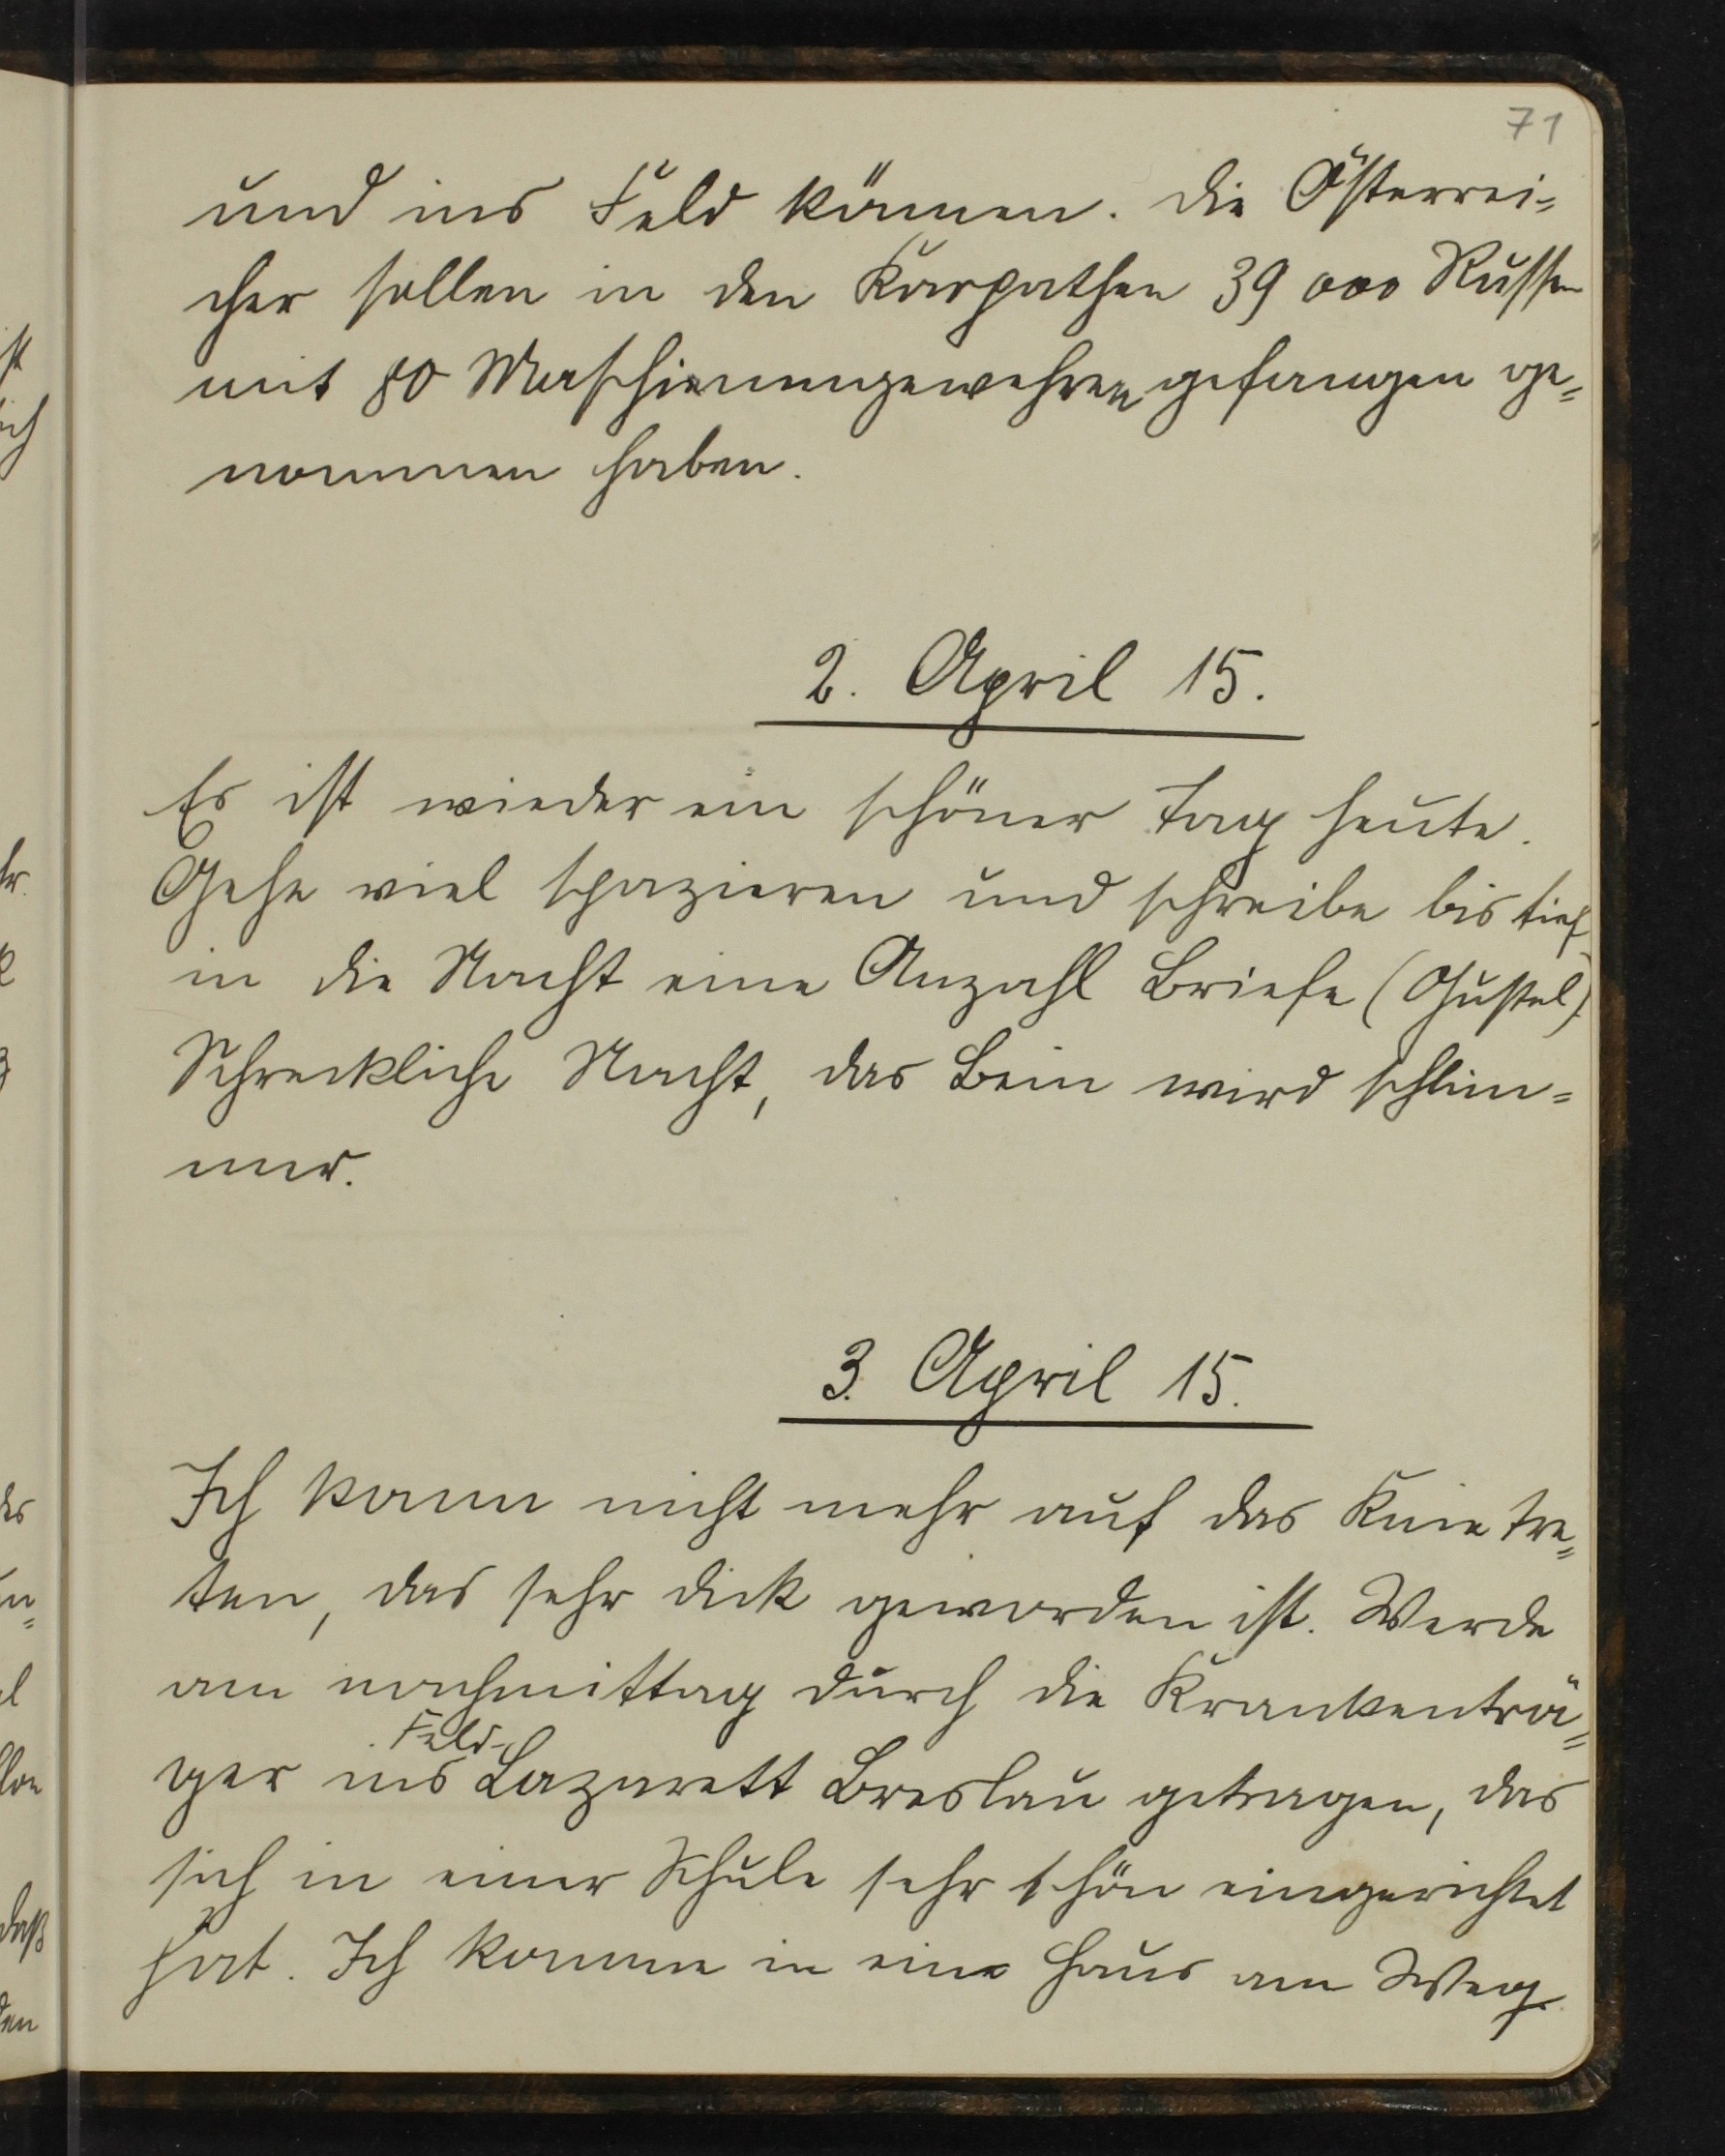 71
und ins Feld kämen. Die Österrei=
cher sollen in den Karpathen 39 000 Russen
mit 80 Maschienengewehren gefangen ge=
nommen haben.
2. April 15.
Es ist wieder ein schöner Tag heute.
Gehe viel spazieren und schreibe bis tief
in die Nacht eine Anzahl Briefe (Gustel)
Schreckliche Nacht, das Bein wird schlim=
mer.
3. April 15.
Ich kann nicht mehr auf das Knie tre=
ten, das sehr dick geworden ist. Werde
am nachmittag durch die Krankenträ=
Feld-
ger ins Lazarett Breslau getragen, das
sich in einer Schule sehr schön eingerichtet
hat. Ich komme in eine Haus am Weg